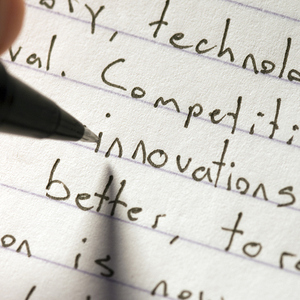 technolo
val. Competiti
innovations
better, to
on is